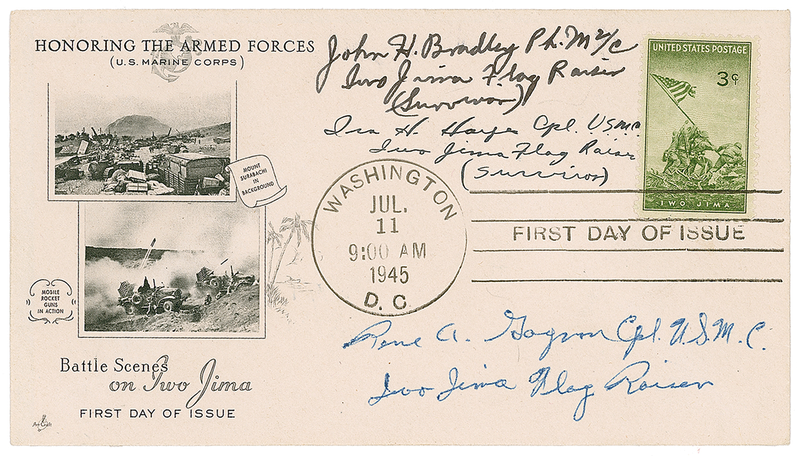 HONORING THE ARMED FORCES
(U.S. MARINE CORPS)
John H. Bradley Ph.M 2/c
Iwo Jima Flag Raiser
(Survivor)
Ira H. Hayes Cpl. USMC
Iwo Jima Flag Raiser
(Survivor)
UNITED STATES POSTAGE
3¢
IWO JIMA
MOUNT
SURABACHI
IN
BACKGROUND
WASHINGTON
JUL.
11
9:00 AM
1945
D. C.
FIRST DAY OF ISSUE
MOBILE
ROCKET
GUNS
IN ACTION
Rene A. Gagnon Cpl. U.S.M.C.
Iwo Jima Flag Raiser
Battle Scenes
on Iwo Jima
FIRST DAY OF ISSUE